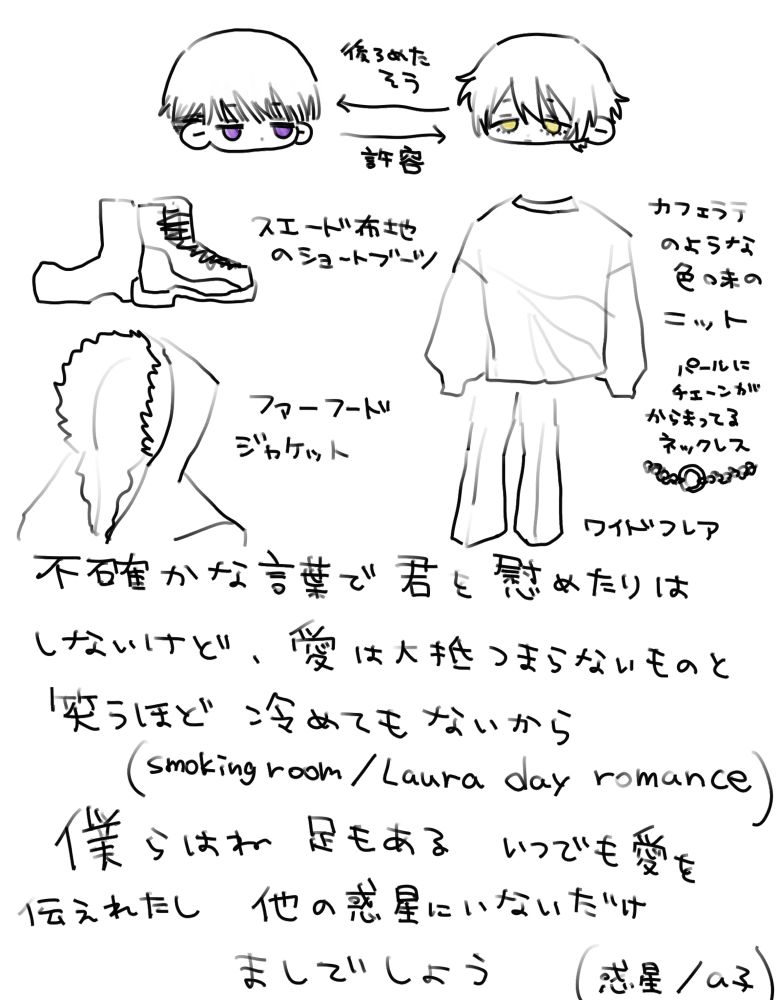 後ろめた
そう
許容
スエード布地
のショートブーツ
カフェラテ
のような
色味の
ニット
パールに
チェーンが
からまってる
ネックレス
ファーフード
ジャケット
ワイドフレア
不確かな言葉で君を慰めたりは
しないけど、愛は大抵つまらないものと
笑うほど冷めてもないから
(smoking room/Laura day romance)
僕らはね 足もある いつでも愛を
伝えれたし 他の惑星にいないだけ
ましでしょう (惑星/a子)